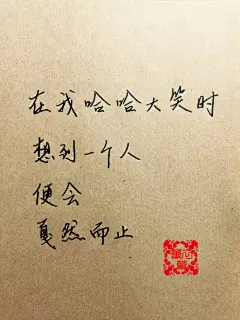 在我哈哈大笑时
想到一个人
便会
戛然而止